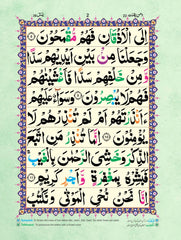 2
اِلَى الۡاَذۡقَانِ فَهُمۡ مُّقۡمَحُوۡنَ
وَجَعَلۡنَا مِنۡۢ بَيۡنِ اَيۡدِيۡهِمۡ سَدًّا
وَّمِنۡ خَلۡفِهِمۡ سَدًّا فَاَغۡشَيۡنٰهُمۡ
فَهُمۡ لَا يُبۡصِرُوۡنَ وَسَوَآءٌ عَلَيۡهِمۡ
ءَاَنۡذَرۡتَهُمۡ اَمۡ لَمۡ تُنۡذِرۡهُمۡ لَا
يُؤۡمِنُوۡنَ اِنَّمَا تُنۡذِرُ مَنِ اتَّبَعَ
الذِّكۡرَ وَخَشِىَ الرَّحۡمٰنَ بِالۡغَيۡبِ
فَبَشِّرۡهُ بِمَغۡفِرَةٍ وَّاَجۡرٍ كَرِيۡمٍ
اِنَّا نَحۡنُ نُحۡىِ الۡمَوۡتٰى وَنَكۡتُبُ